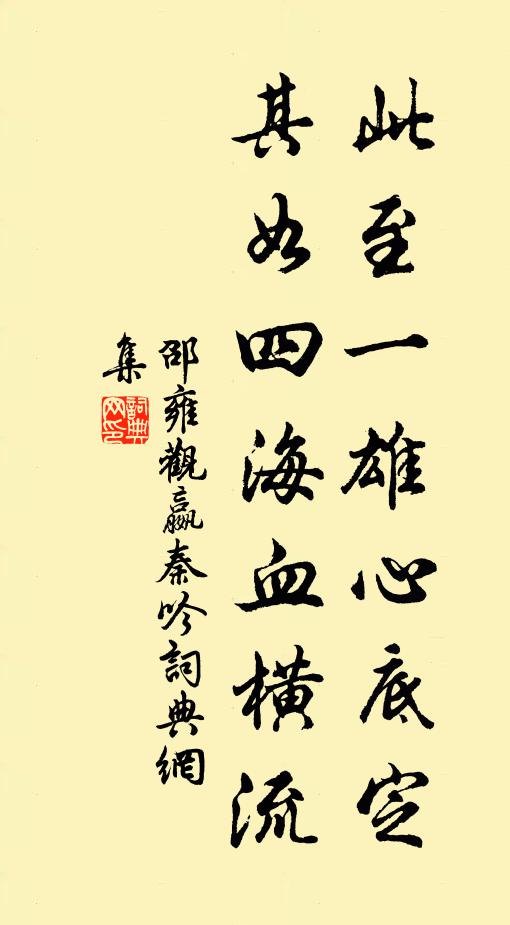 此至一雄心底定
其如四海血橫流
邵雍觀嬴秦吟詞典網
集
詞典
网印